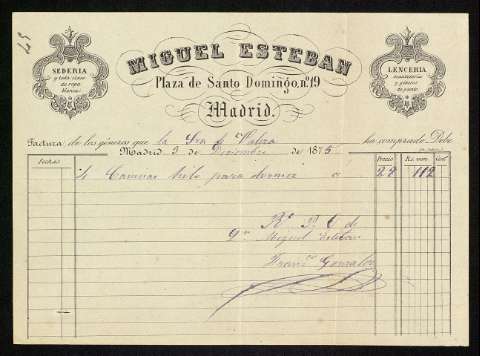 57
SEDERIA
y toda clase
de ropa
blanca
MIGUEL ESTEBAN
Plaza de Santo Domingo, n.º 19
Madrid.
LENCERIA
y géneros
de punto
Factura de los géneros que la Sra de ha comprado Debe
Madrid 2 de Diciembre de 1875
Fechas Precio Rs. von. Cent.
4 Camisas para dormir a 28 112
Rl P. O. de
Dn Miguel Esteban
Franco Gonzalez